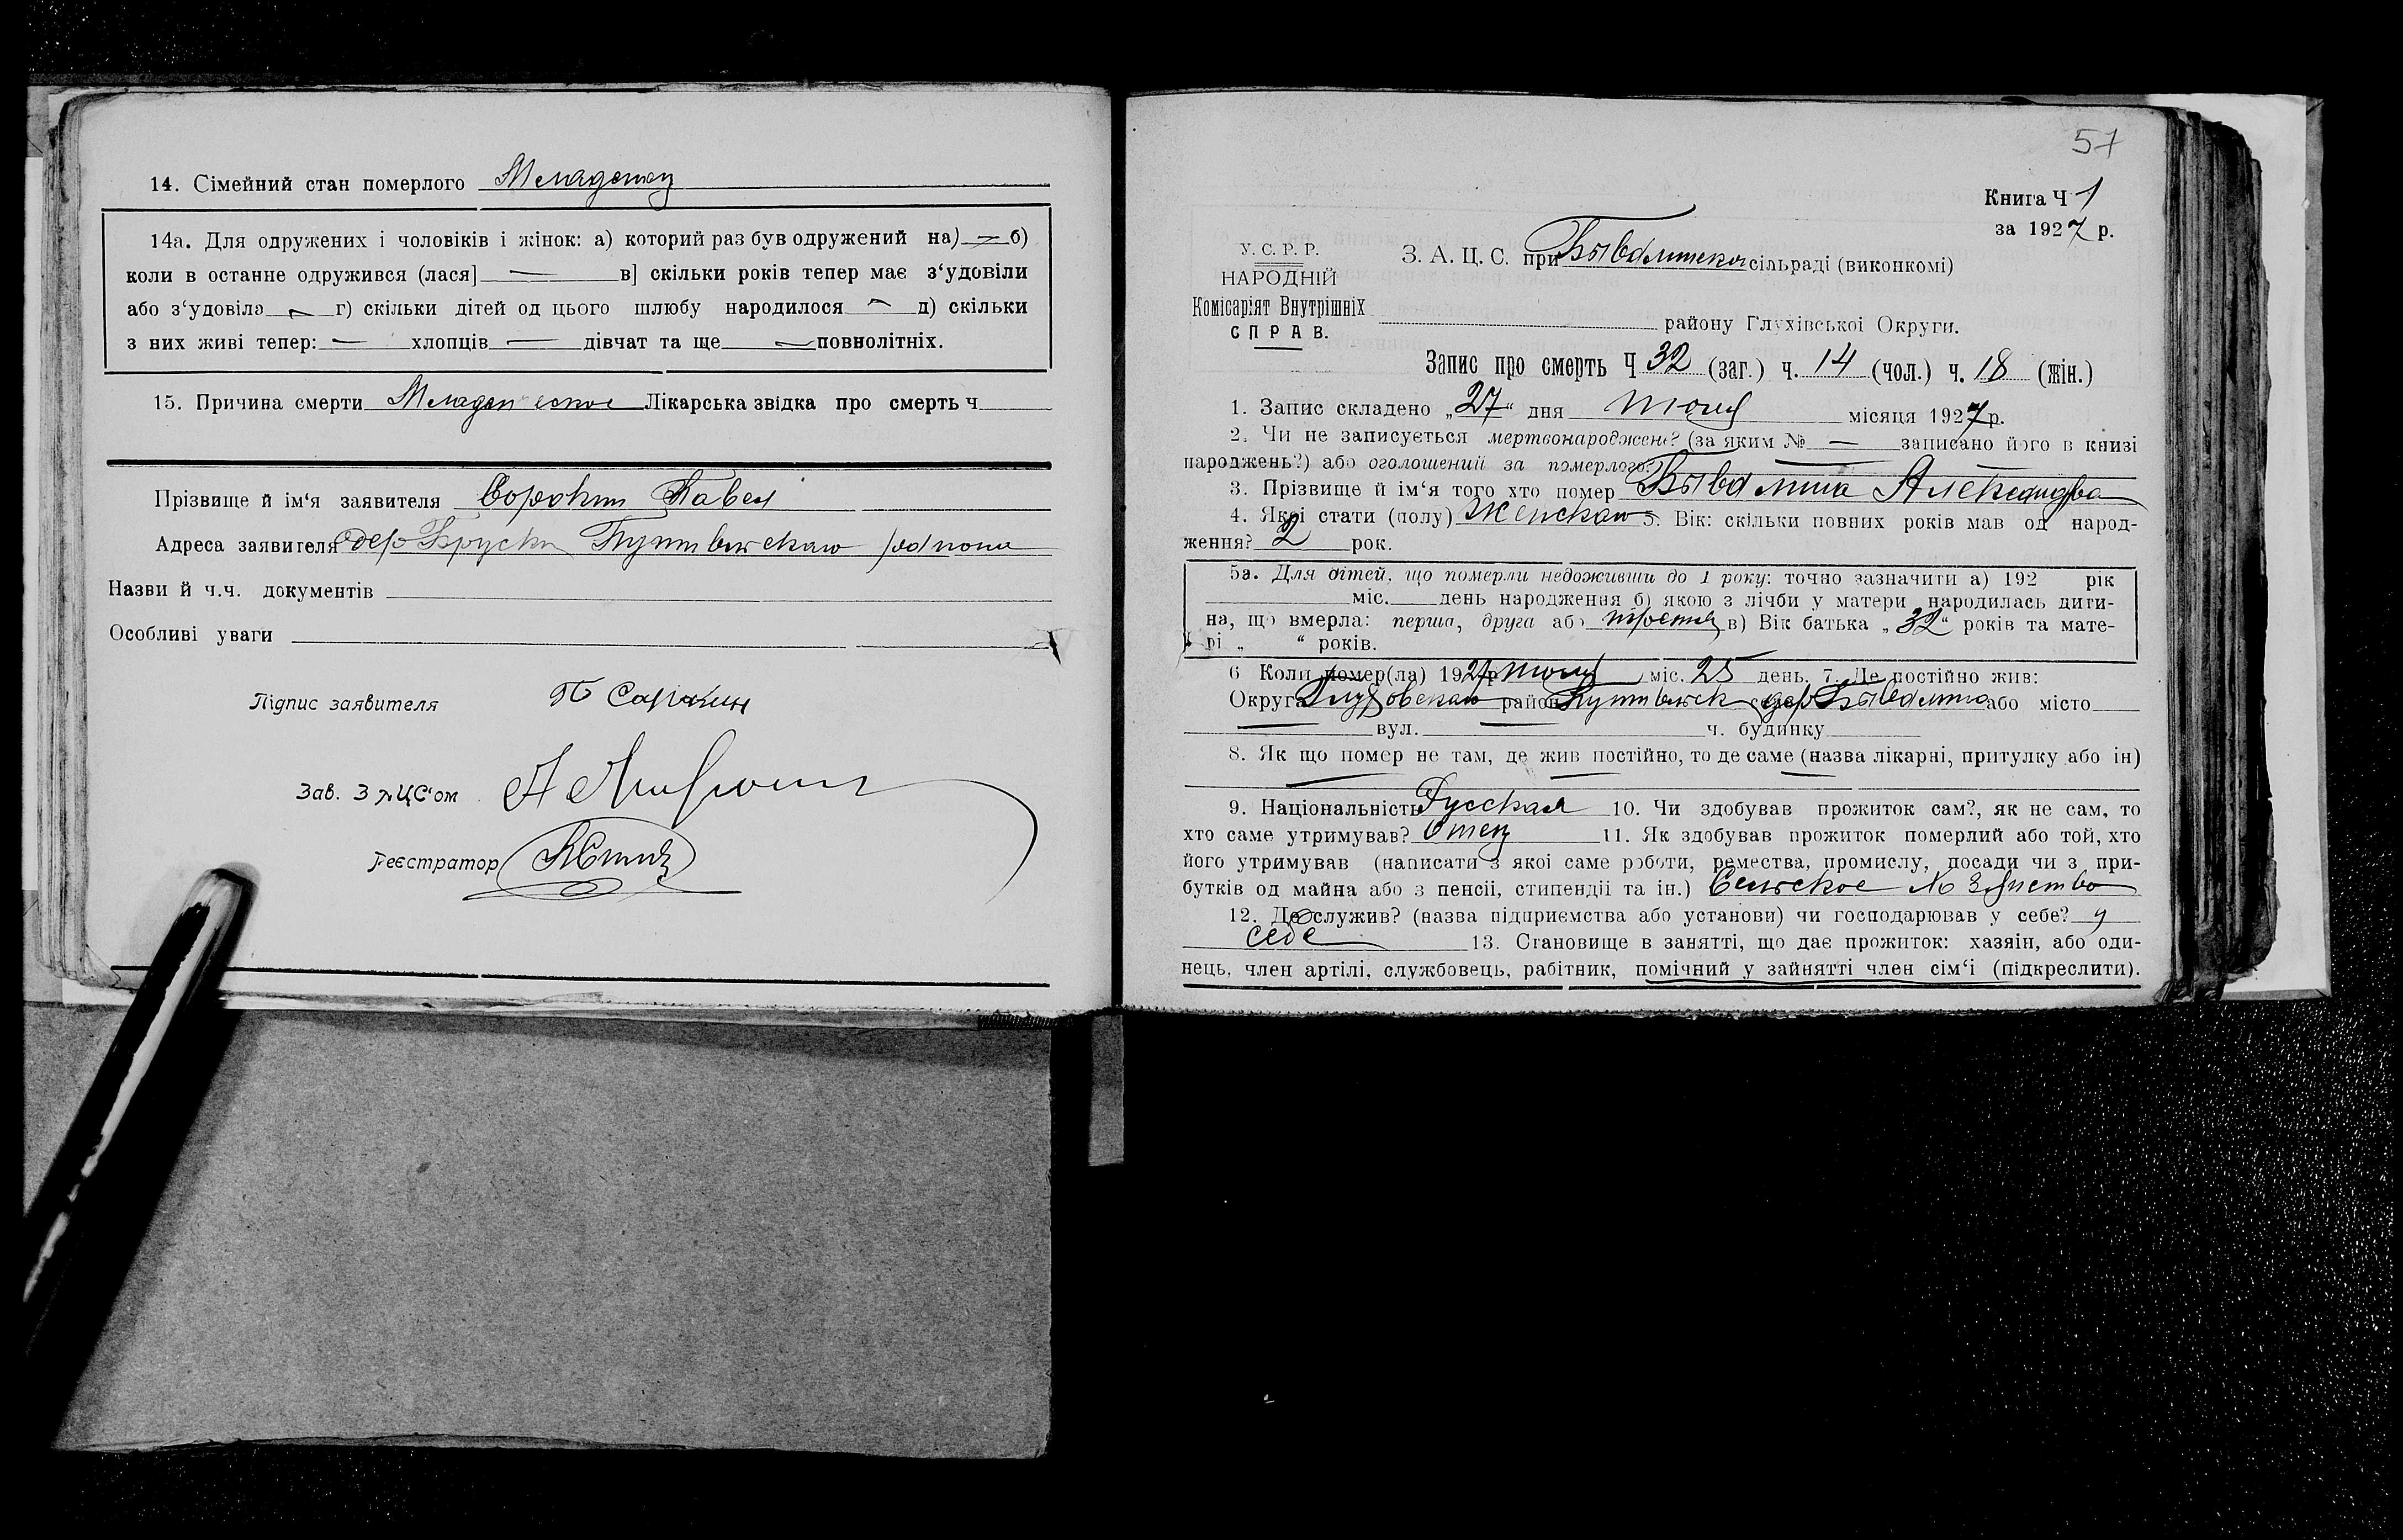 14. Сімейний стан померлого Младенец
14а. Для одружених і чоловіків і жінок: а) которий раз був одружений на) — б)
коли в останне одружився (лася] — в] скільки років тепер має з‘удовіли
або з‘удовіла — г) скільки дітей од цього шлюбу народилося — д) скільки
з них живі тепер: — хлопців — дівчат та ще — повнолітніх.
15. Причина смерти Младенческое Лікарська звідка про смерть ч
Прізвище й ім‘я заявителя Сорокин Павел
Адреса заявителя дер Бруски Путивльскаго района
Назви й ч.ч. документів
Особливі уваги
Підпис заявителя П Саракин
Зав. ЗАЦС‘ом
Реєстратор
57
Книга Ч 1
за 1927 р.
У. С. Р. Р.
НАРОДНІЙ
Комісаріят Внутрішніх
СПРАВ.
З. А. Ц. С. при сільраді (виконкомі)
району Глухівської Округи.
Запис про смерть Ч 32 (заг.) ч. 14 (чол.) ч. 18 (жін.)
1. Запис складено „27“ дня місяця 1927 р.
2. Чи не записується мертвонароджене? (за яким № — записано його в книзі
народжень?) або оголошений за померлого? —
3. Прізвище й ім‘я того хто помер Александра
4. Якої стати (полу) Женская 5. Вік: скільки повних років мав од народ-
ження? 2 рок.
5а. Для дітей, що померли недоживши до 1 року: точно зазначити а) 192 рік
міс. день народження б) якою з лічби у матери народилась дити-
на, що вмерла: перша, друга або третья в) Вік батька „32“ років та мате-
рі „ “ років.
6 Коли помер(ла) 1927р міс. 25 день. 7. Де постійно жив:
Округа Глуховская район Путивльск село дер або місто
— вул. — ч. будинку
8. Як що помер не там, де жив постійно, то де саме (назва лікарні, притулку або ін)
9. Національність Русская 10. Чи здобував прожиток сам?, як не сам, то
хто саме утримував? Отец 11. Як здобував прожиток померлий або той, хто
його утримував (написати з якої саме роботи, ремества, промислу, посади чи з при-
бутків од майна або з пенсії, стипендії та ін.) Сельское Хозяйство
12. Де служив? (назва підприємства або установи) чи господарював у себе? у
себе 13. Становище в занятті, що дає прожиток: хазяін, або оди-
нець, член артілі, службовець, рабітник, помічний у зайнятті член сім‘ї (підкреслити).